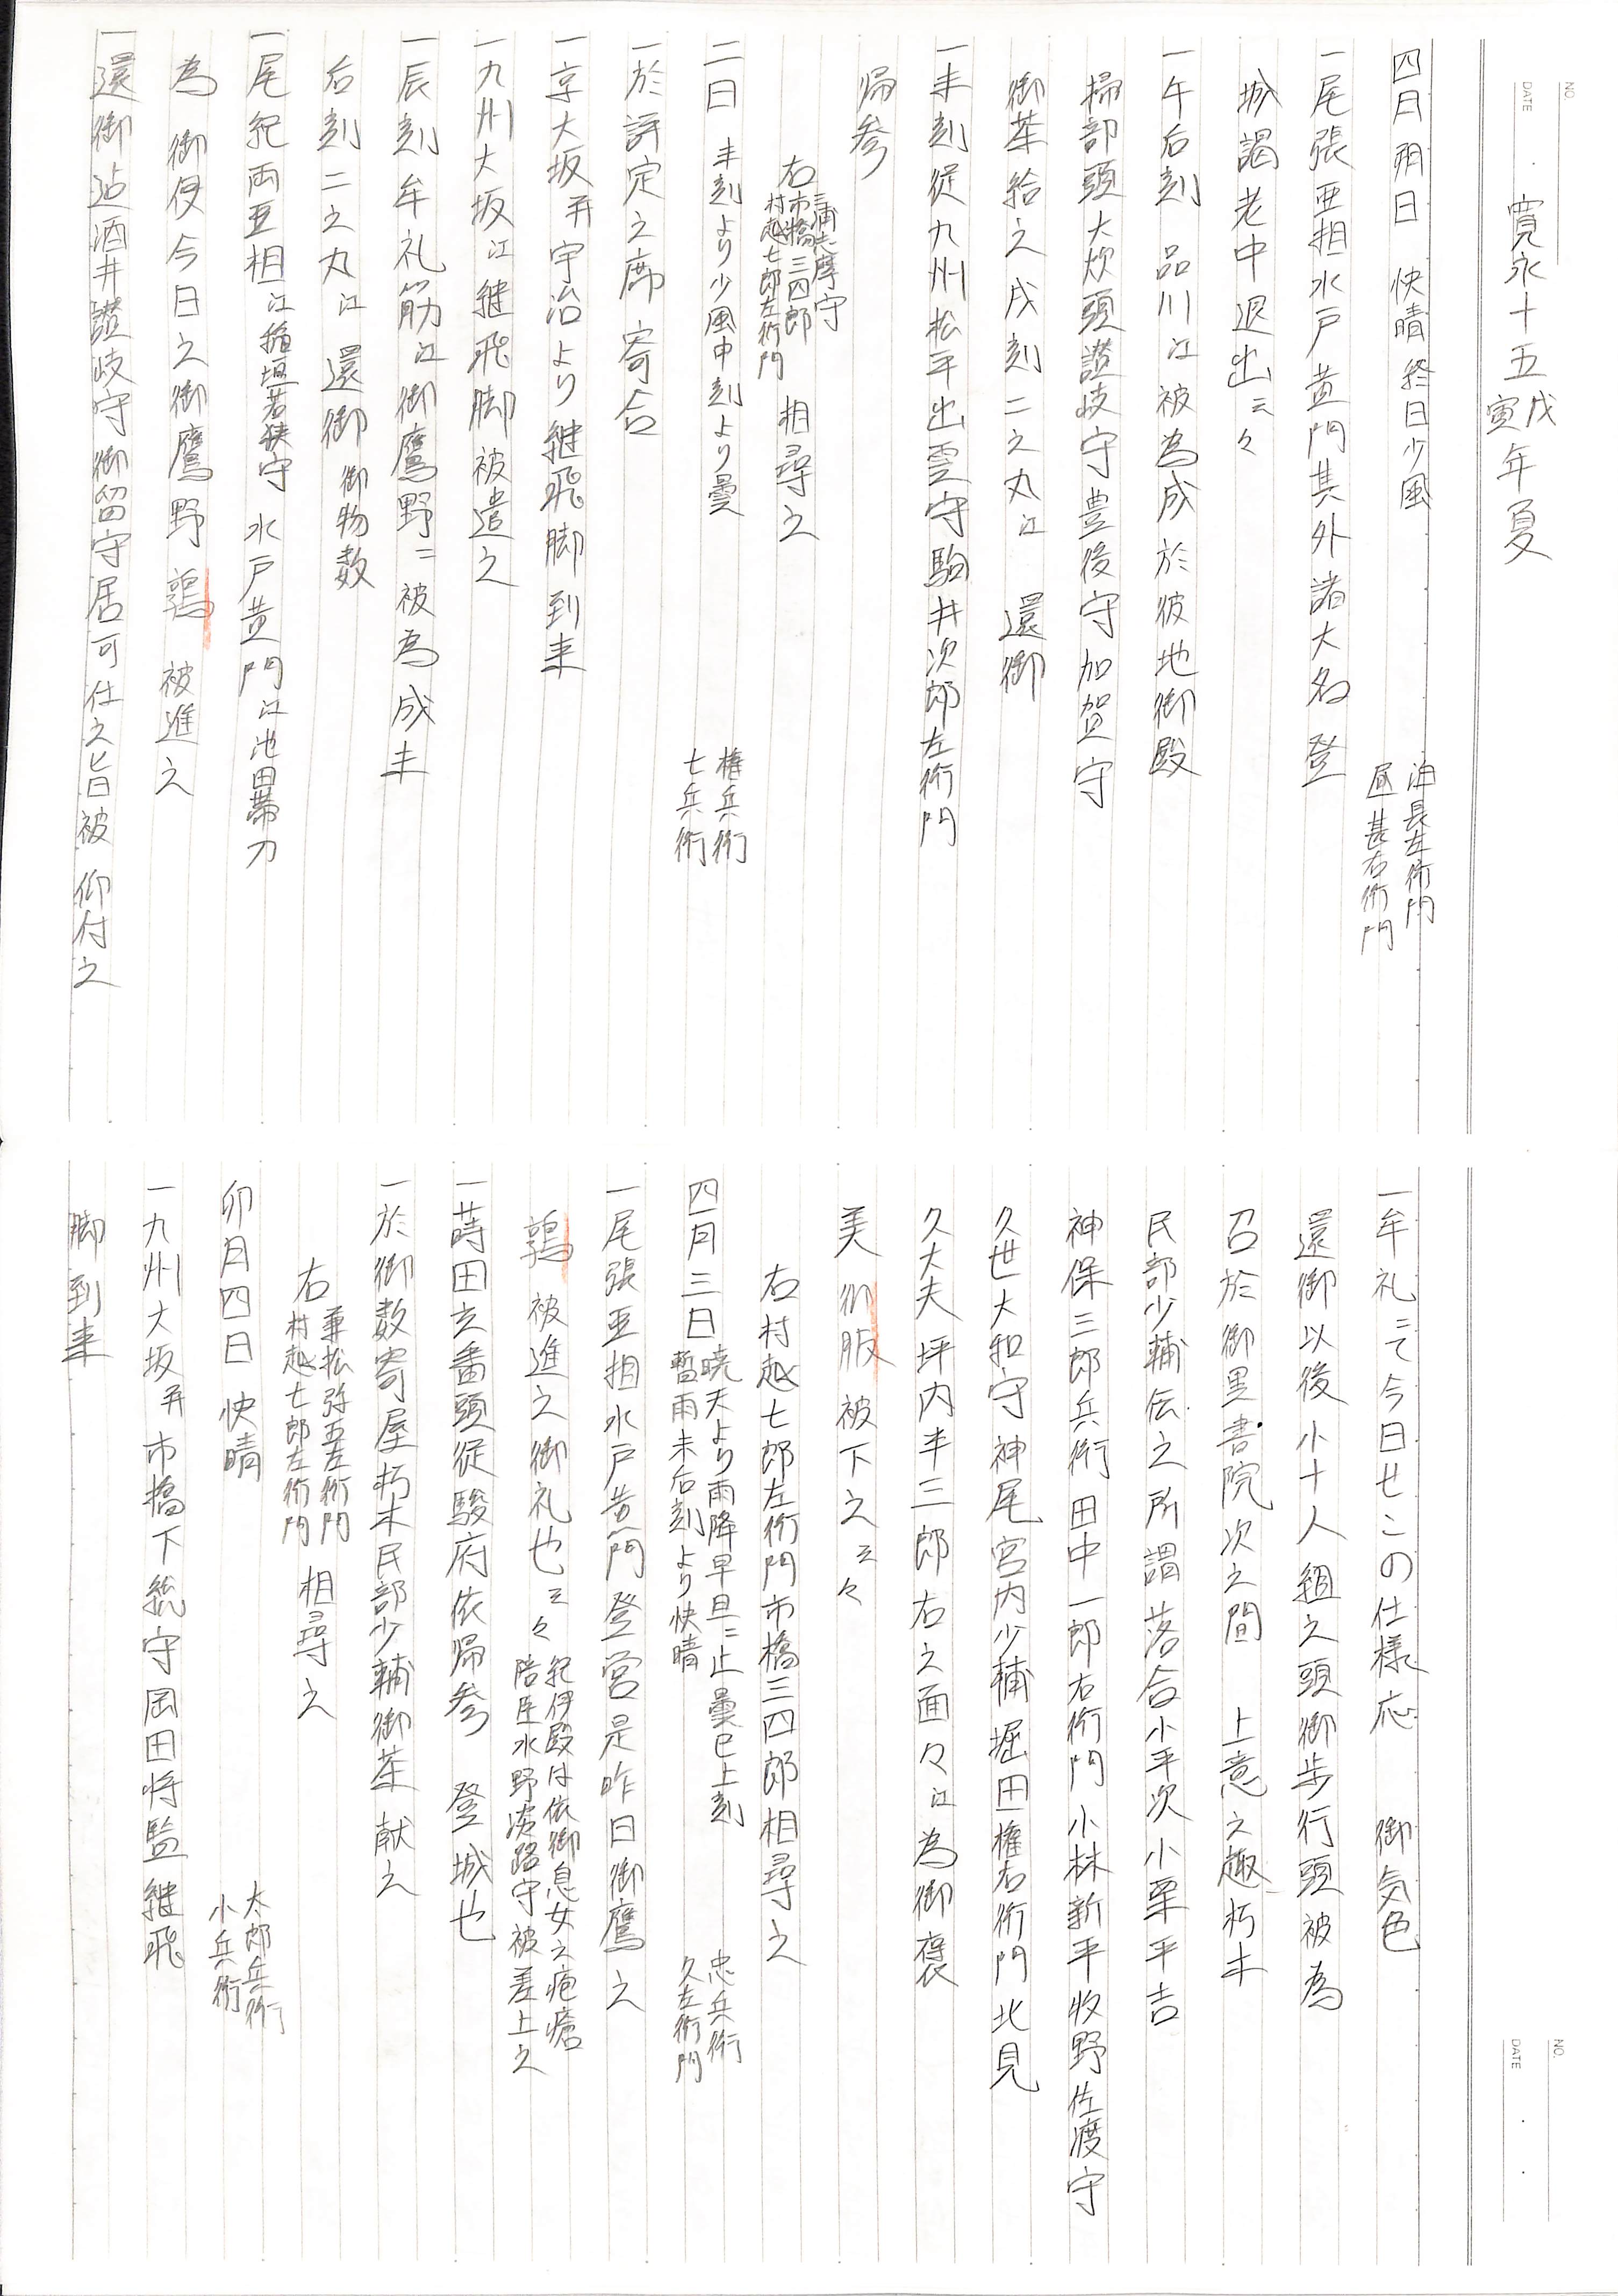 NO.
DATE
寛永十五戊寅年夏
四月朔日 快晴終日少風 油長左衛門 屋甚右衛門
一尾張亜相水戸黄門其外諸大名登
城謁老中退出云々
一午后刻 品川江被為成於彼地御殿
掃部頭大炊頭讃岐守豊後守加賀守
御茶給之戌刻二之丸江 還御
一未刻従九州松平出雲守駒井次郎左衛門
帰参
右 三浦志摩守 市橋三四郎 村越七郎左衛門 相尋之
二日 未刻より少風申刻より曇 権兵衛 七兵衛
一於評定之席寄合
一京大坂并宇治より継飛脚到来
一九州大坂江継飛脚被遣之
一辰刻牟礼筋江御鷹野ニ被為成未
后刻二之丸江 還御 御物数
一尾紀両亜相江稲垣若狭守 水戸黄門江池田帯刀
為 御使今日之御鷹野 鶉 被進之
還御迄酒井讃岐守御留守居可仕之旨被 仰付之
NO.
DATE
一牟礼ニて今日せこの仕様応 御気色
還御以後小十人組之頭御歩行頭被為
召於御黒書院次之間 上意之趣朽木
民部少輔伝之所謂落合小平次小栗平吉
神保三郎兵衛田中一郎右衛門小林新平牧野佐渡守
久世大和守神尾宮内少輔堀田権右衛門北見
久大夫坪内半三郎右之面々江為御褒
美 御服被下之云々
右村越七郎左衛門市橋三四郎相尋之
四月三日 暁天より雨降早旦ニ止曇巳上刻 暫雨未后刻より快晴 忠兵衛 久左衛門
一尾張亜相水戸黄門登営是昨日御鷹之
鶉 被進之御礼也云々 紀伊殿は依御息女之疱瘡 陪臣水野淡路守被差上之
一蒔田玄蕃頭従駿府依帰参 登城也
一於御数寄屋朽木民部少輔御茶献之
右 兼松弥五左衛門 村越七郎左衛門 相尋之
卯月四日 快晴 太郎兵衛 小兵衛
一九州大坂并市橋下総守岡田将監継飛
脚到来